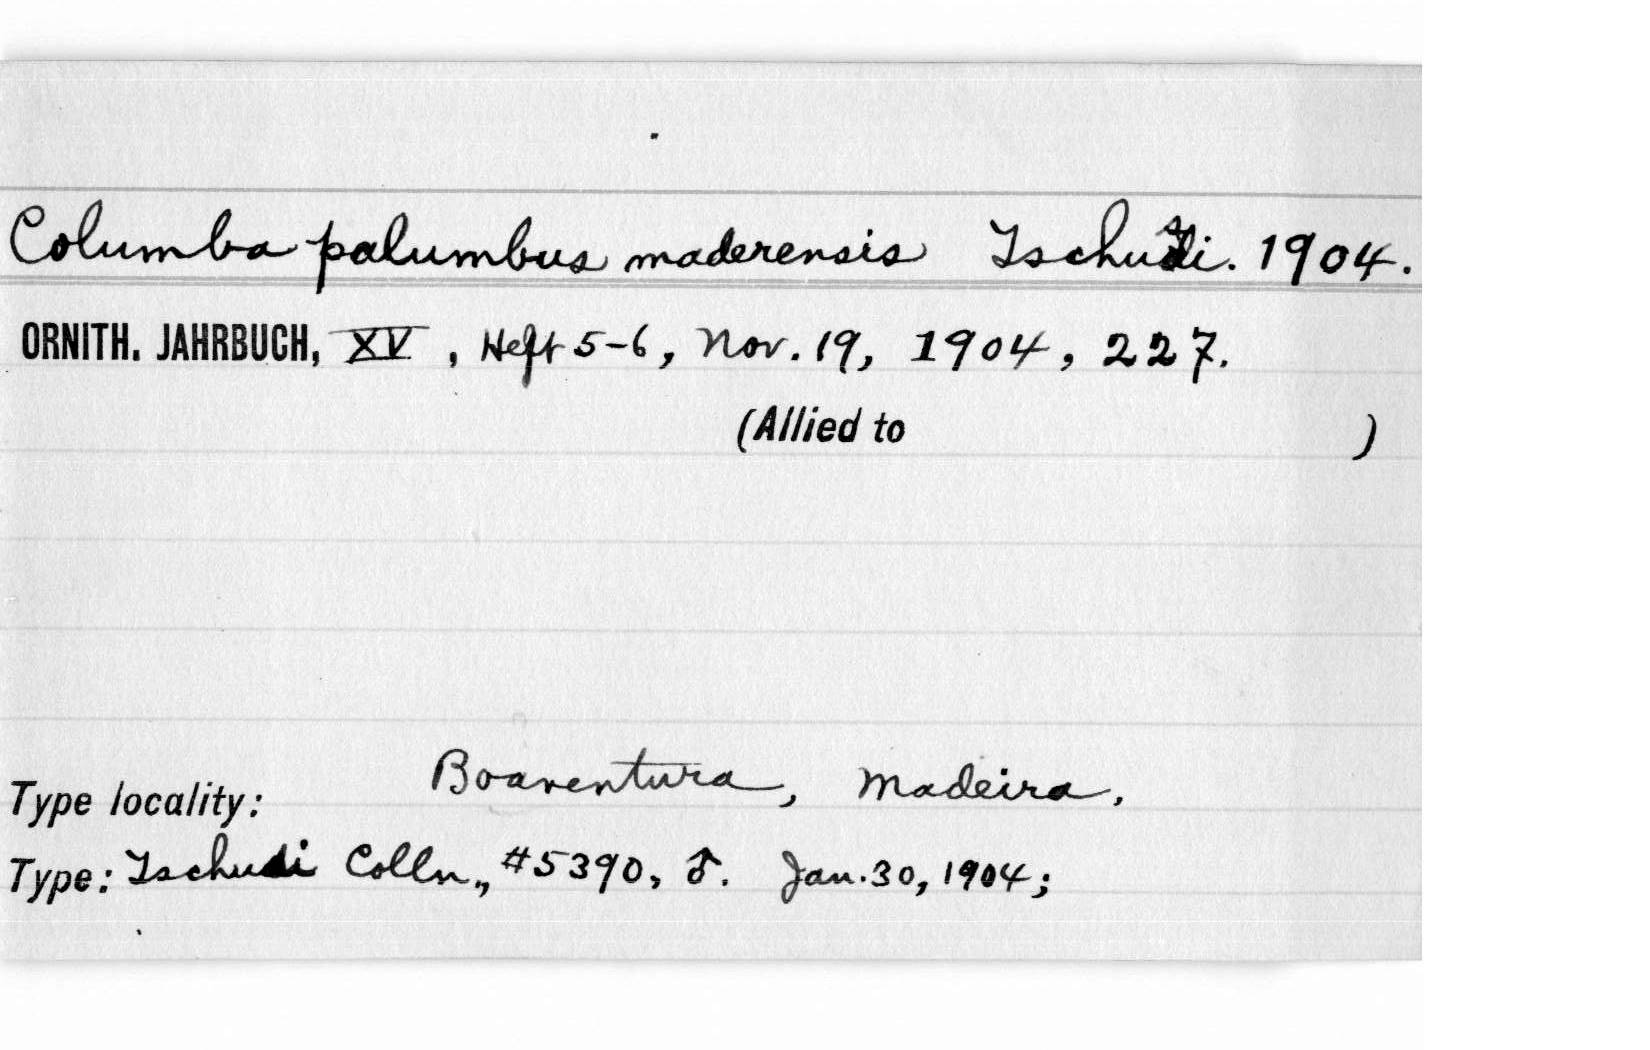 Columba palumbus maderensis Tschudi. 1904.
ORNITH. JAHRBUCH, XV, Heft 5-6, Nov. 19, 1904, 227.
(Allied to )
Type locality: Boaventura, Madeira.
Type: Tschudi Colln., #5390, ♂. Jan. 30, 1904;